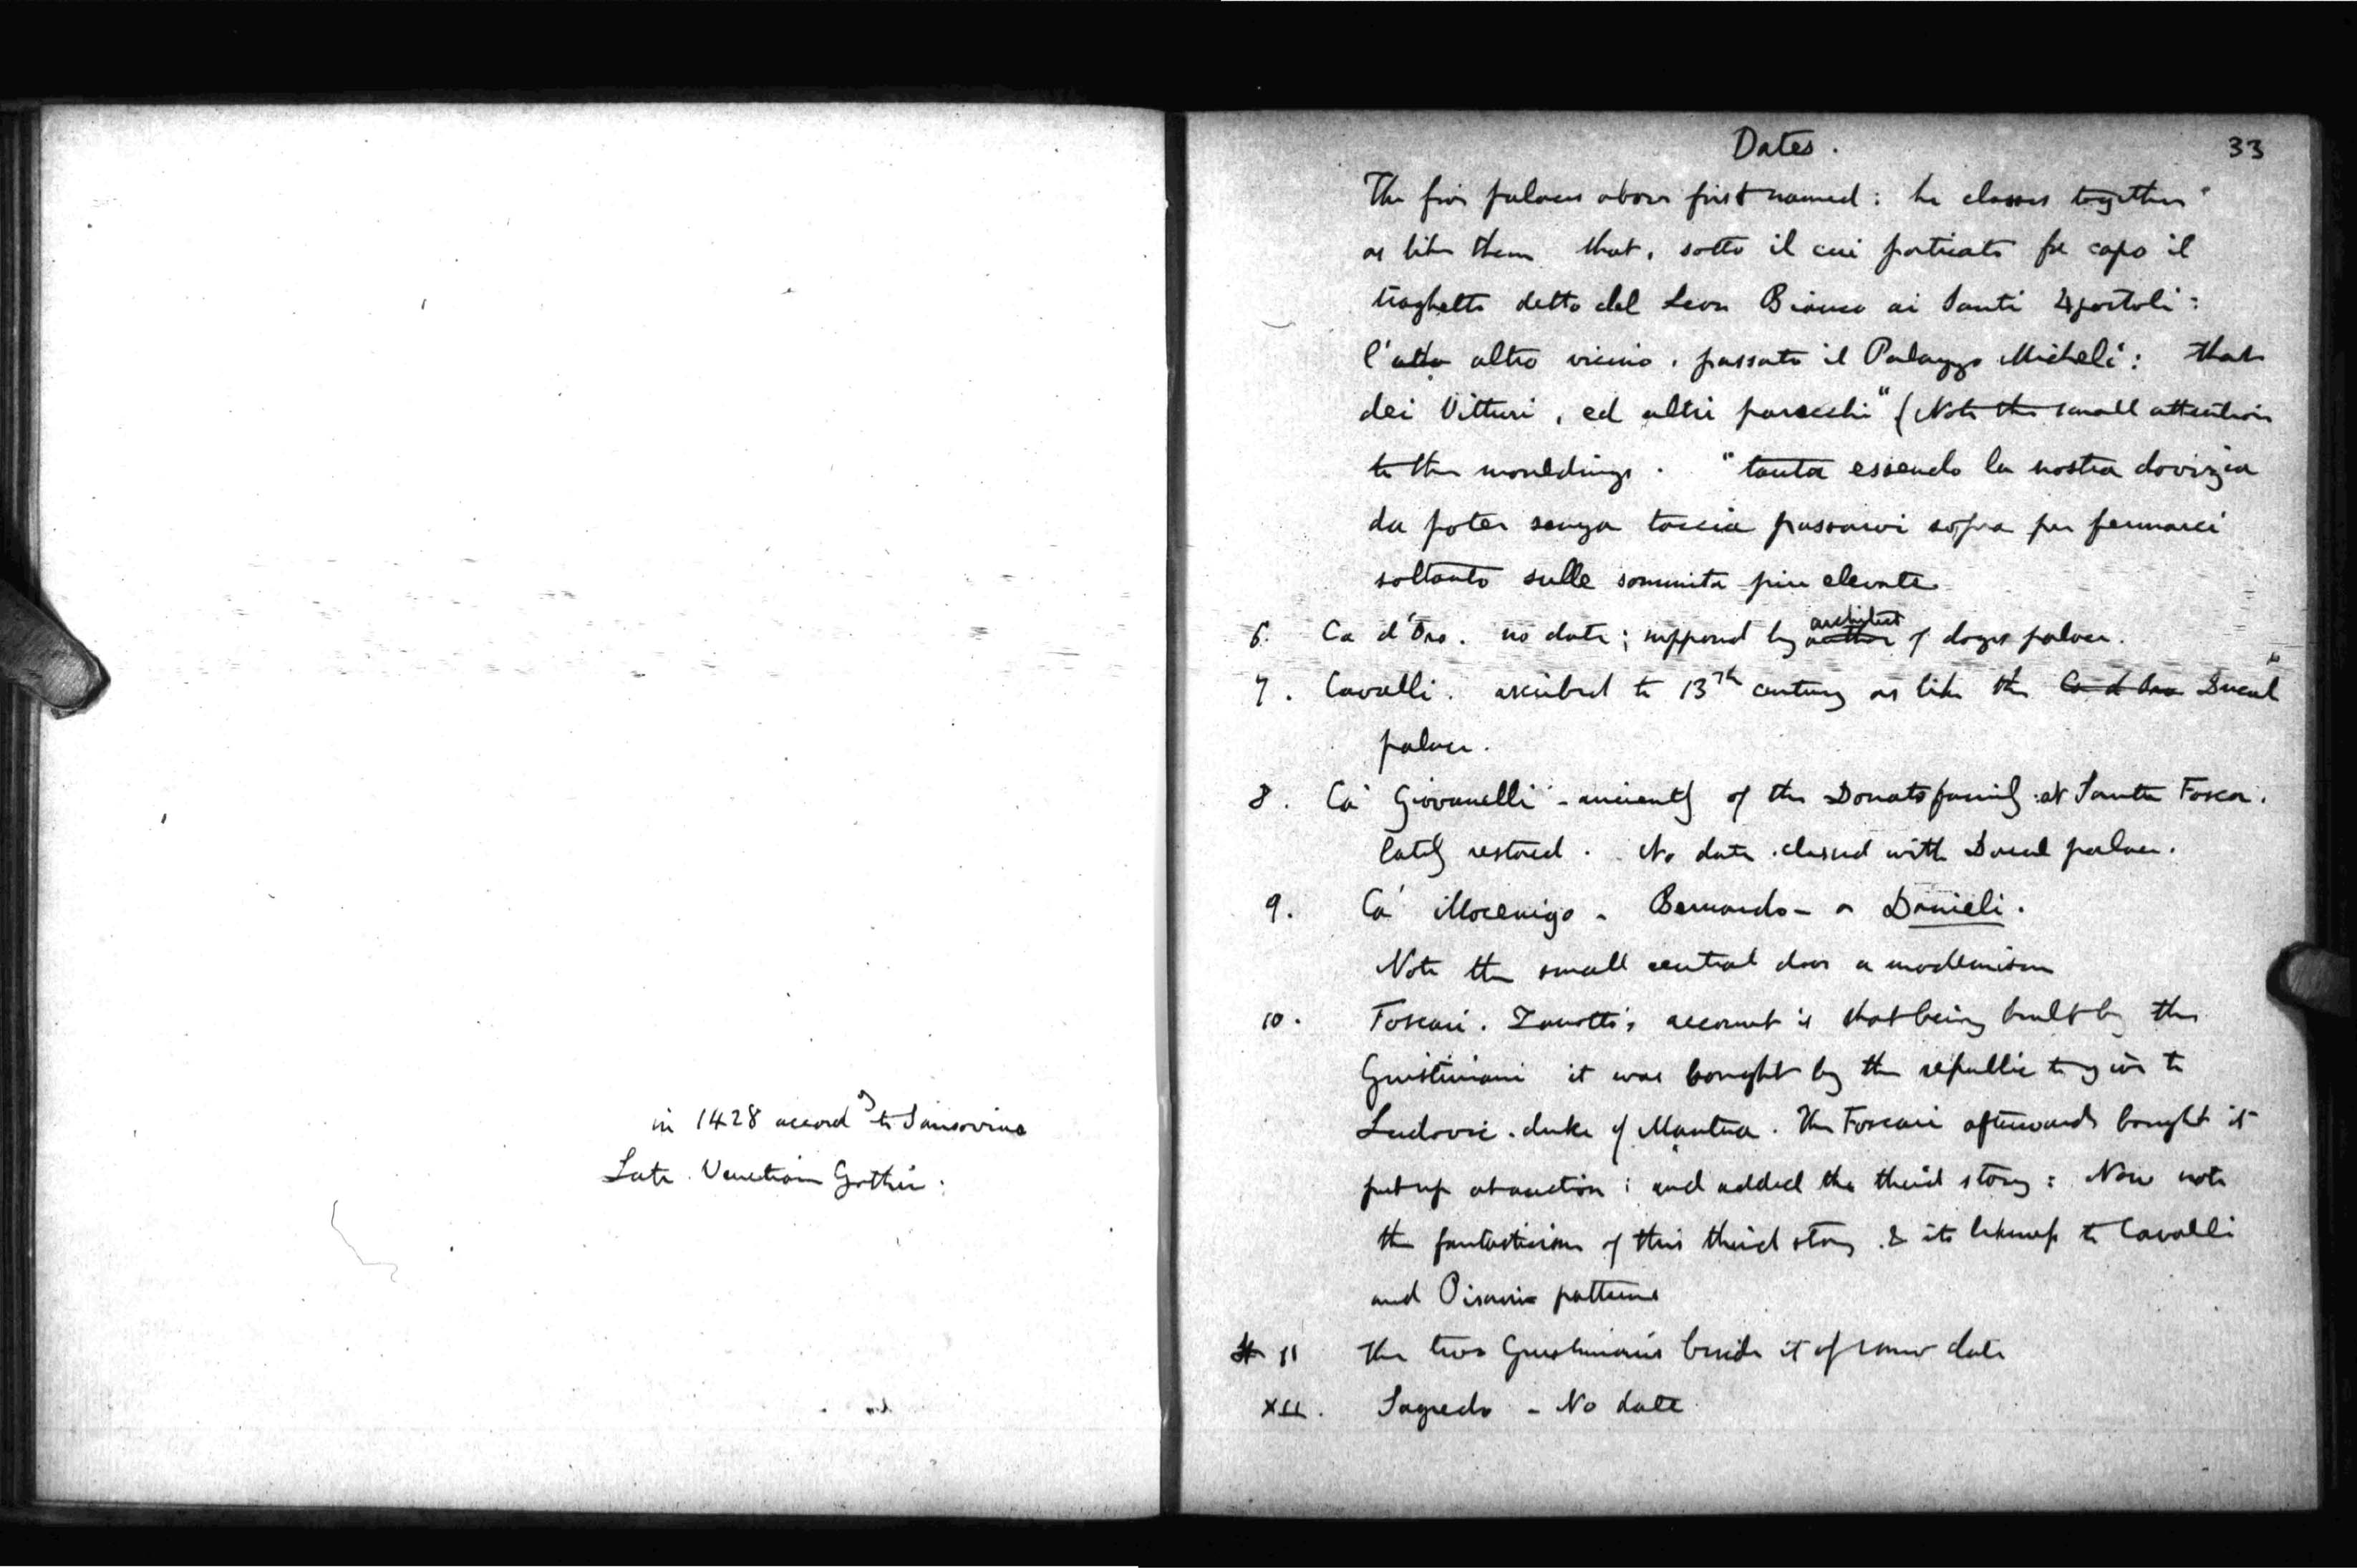 in 1428 accordg to Sansovino
Late Venetian Gothic.
Dates.
33
The five palaces above first named: he classes together
as like them that, sotto il cui porticato fa capo il
traghetto detto del Leon Bianco ai Santi Apostoli:
l'altro altro vicino, passato il Palazzo Micheli: that
dei Vitturi, ed altri parecchi" (Note the small attention
to the mouldings. "tanta essendo la nostra dovizia
da poter senza taccia passarvi sopra per fermarci
soltanto sulle sommita piu elevate
6. Ca d'Oro. no date; supposed by author architect of doges palace.
7. Cavalli. ascribed to 13th century as like the Ca d Oro Ducal
palace.
8. Ca' Giovanelli - anciently of the Donato family at Santa Fosca.
lately restored. No date. classed with Ducal palace.
9. Ca' Mocenigo - Bernardo - or Danieli.
Note the small central door a modernism
10. Foscari. Zanotti's account is that being built by the
Guistiniani it was bought by the republic to give to
Ludovic. duke of Mantua. The Foscari afterwards bought it
put up at auction: and added the third story: Now note
the fantasticism of this third story & its likeness to Cavalli
and Pisani patterns
11 The two Guistinianis beside it of same date
XII. Sagredo - No date